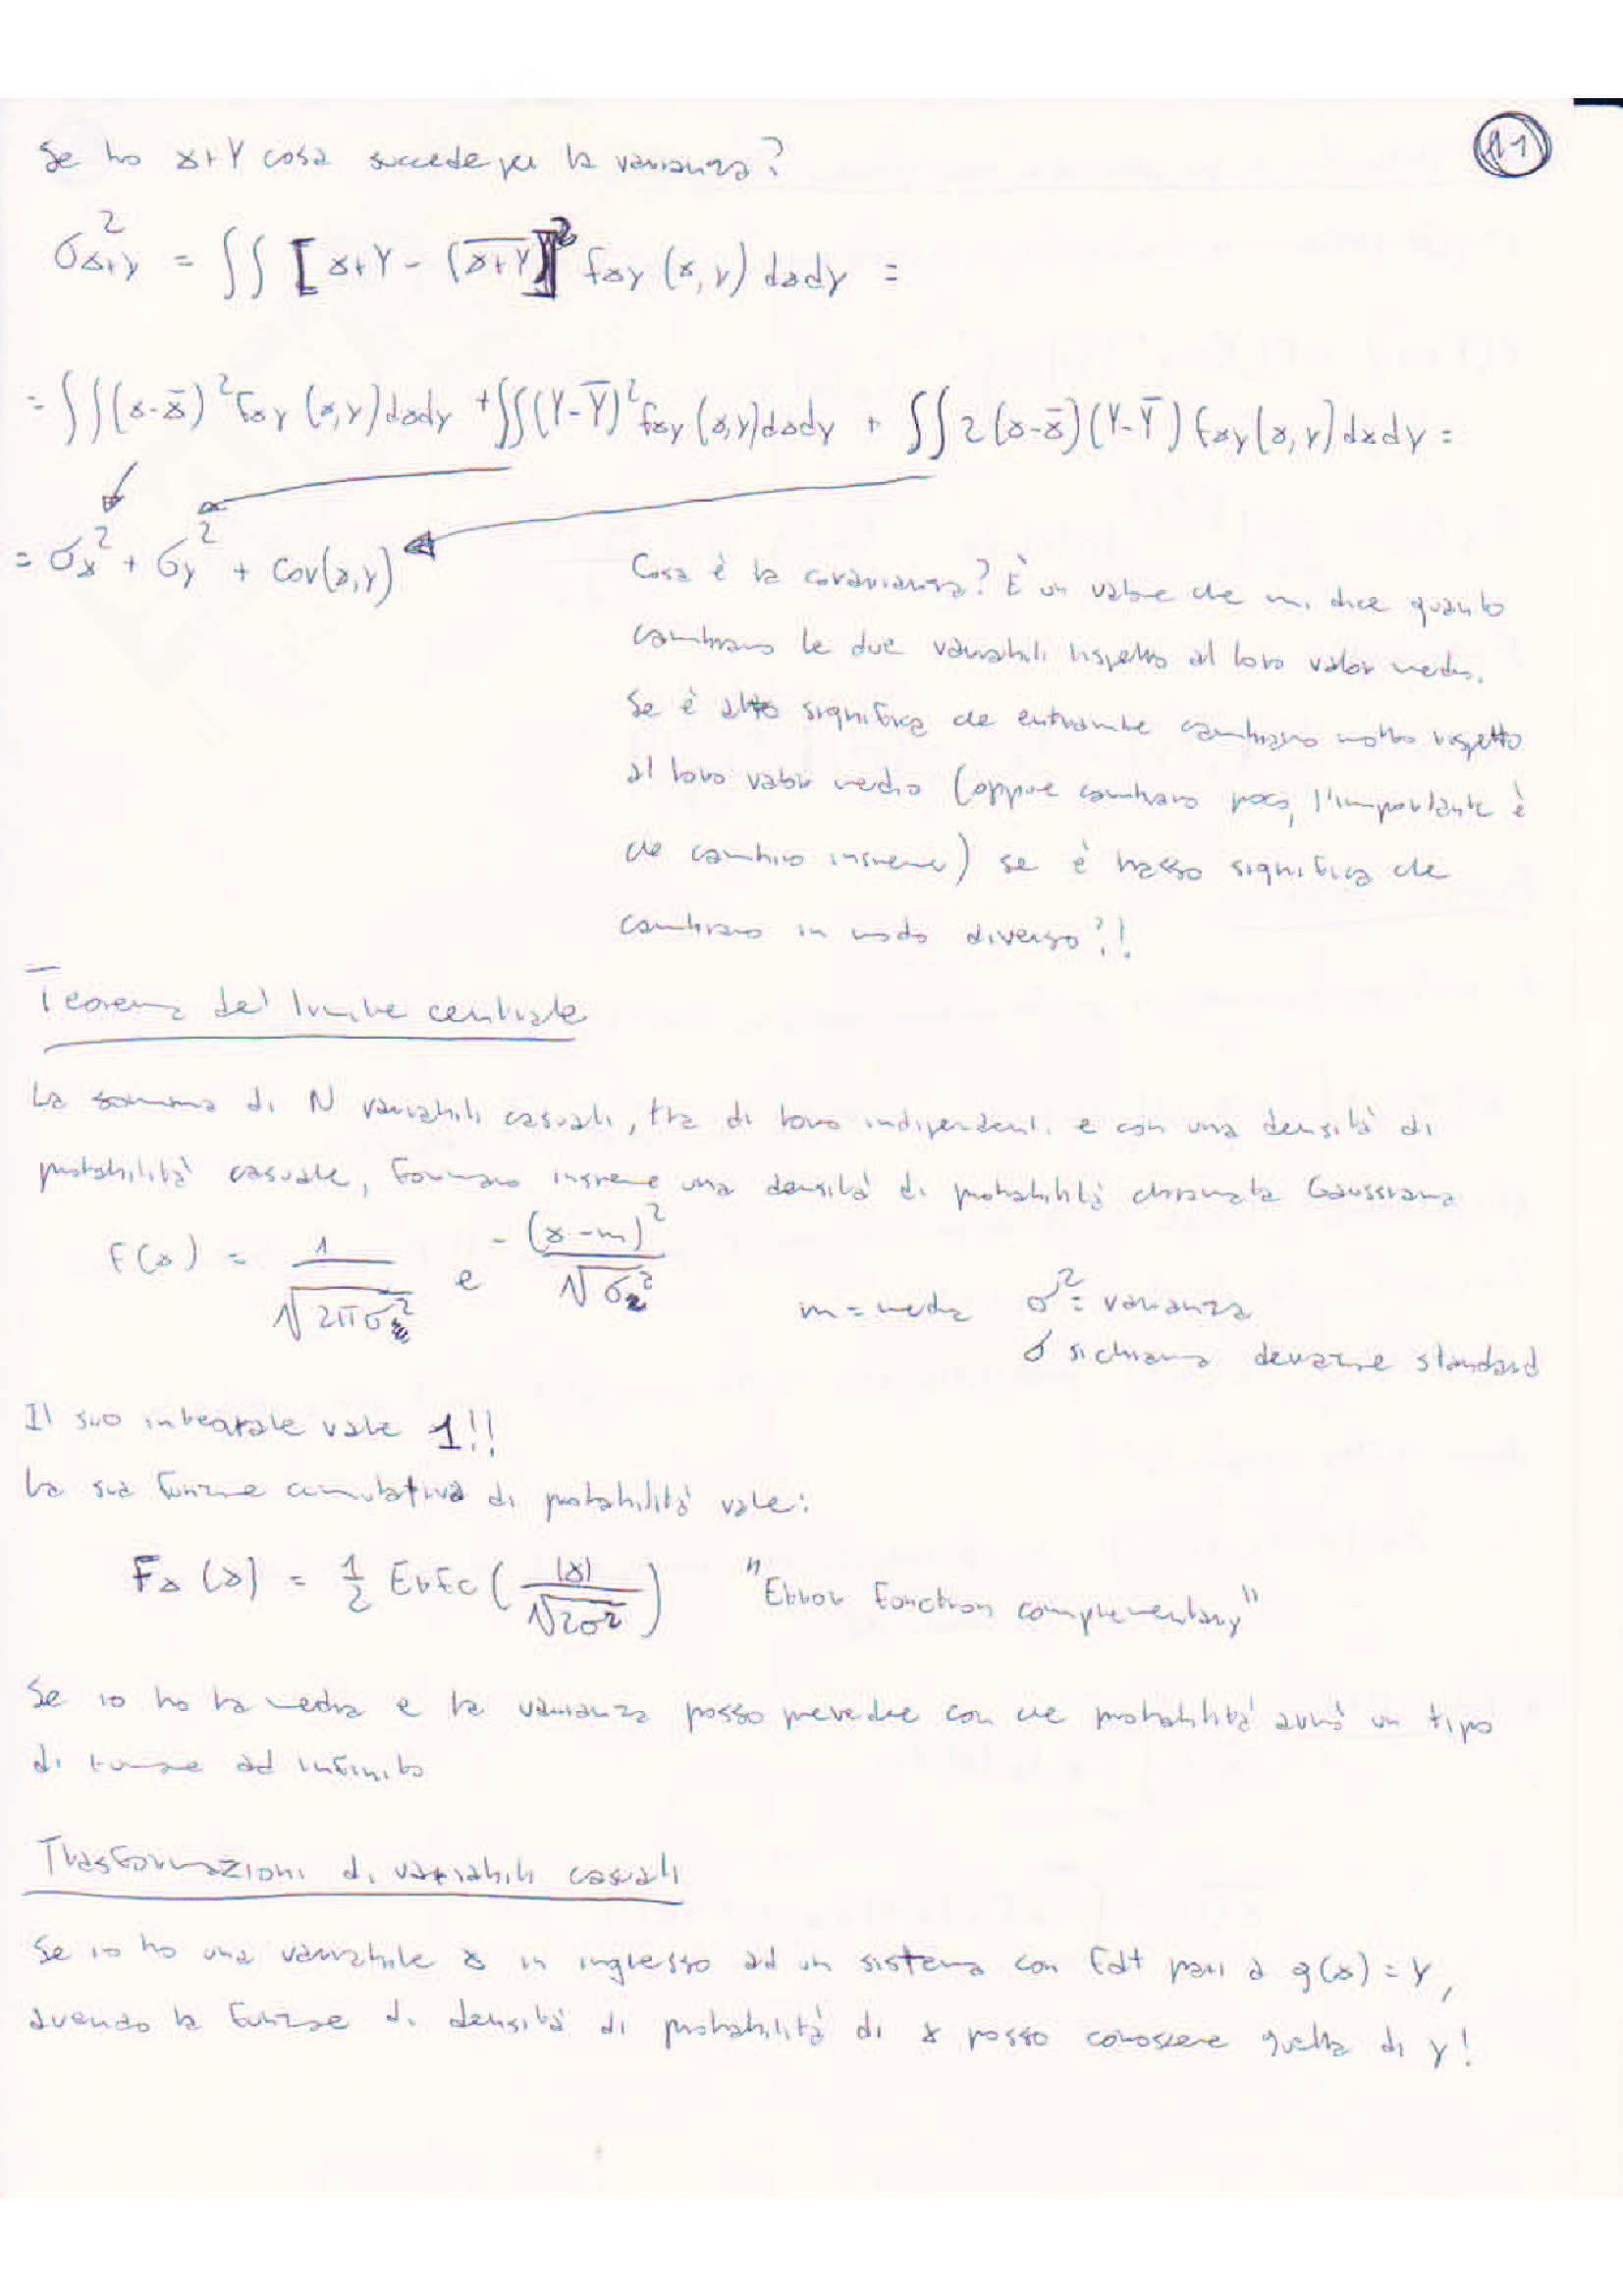 11
Se ho x+Y cosa succede per la varianza?
σ²x+y = ∫∫ [x+Y - (x+Y)]² fxy (x,y) dxdy =
= ∫∫(x-x̄)² fxy (x,y)dxdy + ∫∫(Y-Ȳ)² fxy (x,y)dxdy + ∫∫ 2(x-x̄)(Y-Ȳ) fxy(x,y)dxdy =
= σx² + σy² + Cov(x,y)
Cosa è la covarianza? È un valore che mi dice quanto
cambiano le due variabili rispetto al loro valor medio.
Se è alto significa che entrambe cambiano molto rispetto
al loro valor medio (oppure cambiano poco, l'importante è
che cambino insieme) se è basso significa che
cambiano in modo diverso?!
Teorema del limite centrale
La somma di N variabili casuali, tra di loro indipendenti e con una densità di
probabilità casuale, formano insieme una densità di probabilità chiamata Gaussiana
f(x) = 1/√(2πσ²) e^-(x-m)²/√σ²
m = media σ² = varianza
σ si chiama deviazione standard
Il suo integrale vale 1!!
La sua funzione cumulativa di probabilità vale:
Fx (x) = 1/2 Erfc (|x|/√2σ²) "Error Fonction complementary"
Se io ho la media e la varianza posso prevedere con che probabilità avrò un tipo
di ad infinito
Trasformazioni di variabili casuali
Se io ho una variabile x in ingresso ad un sistema con fdt pari a g(x) = y,
avendo la funzione di densità di probabilità di x posso conoscere quella di y!